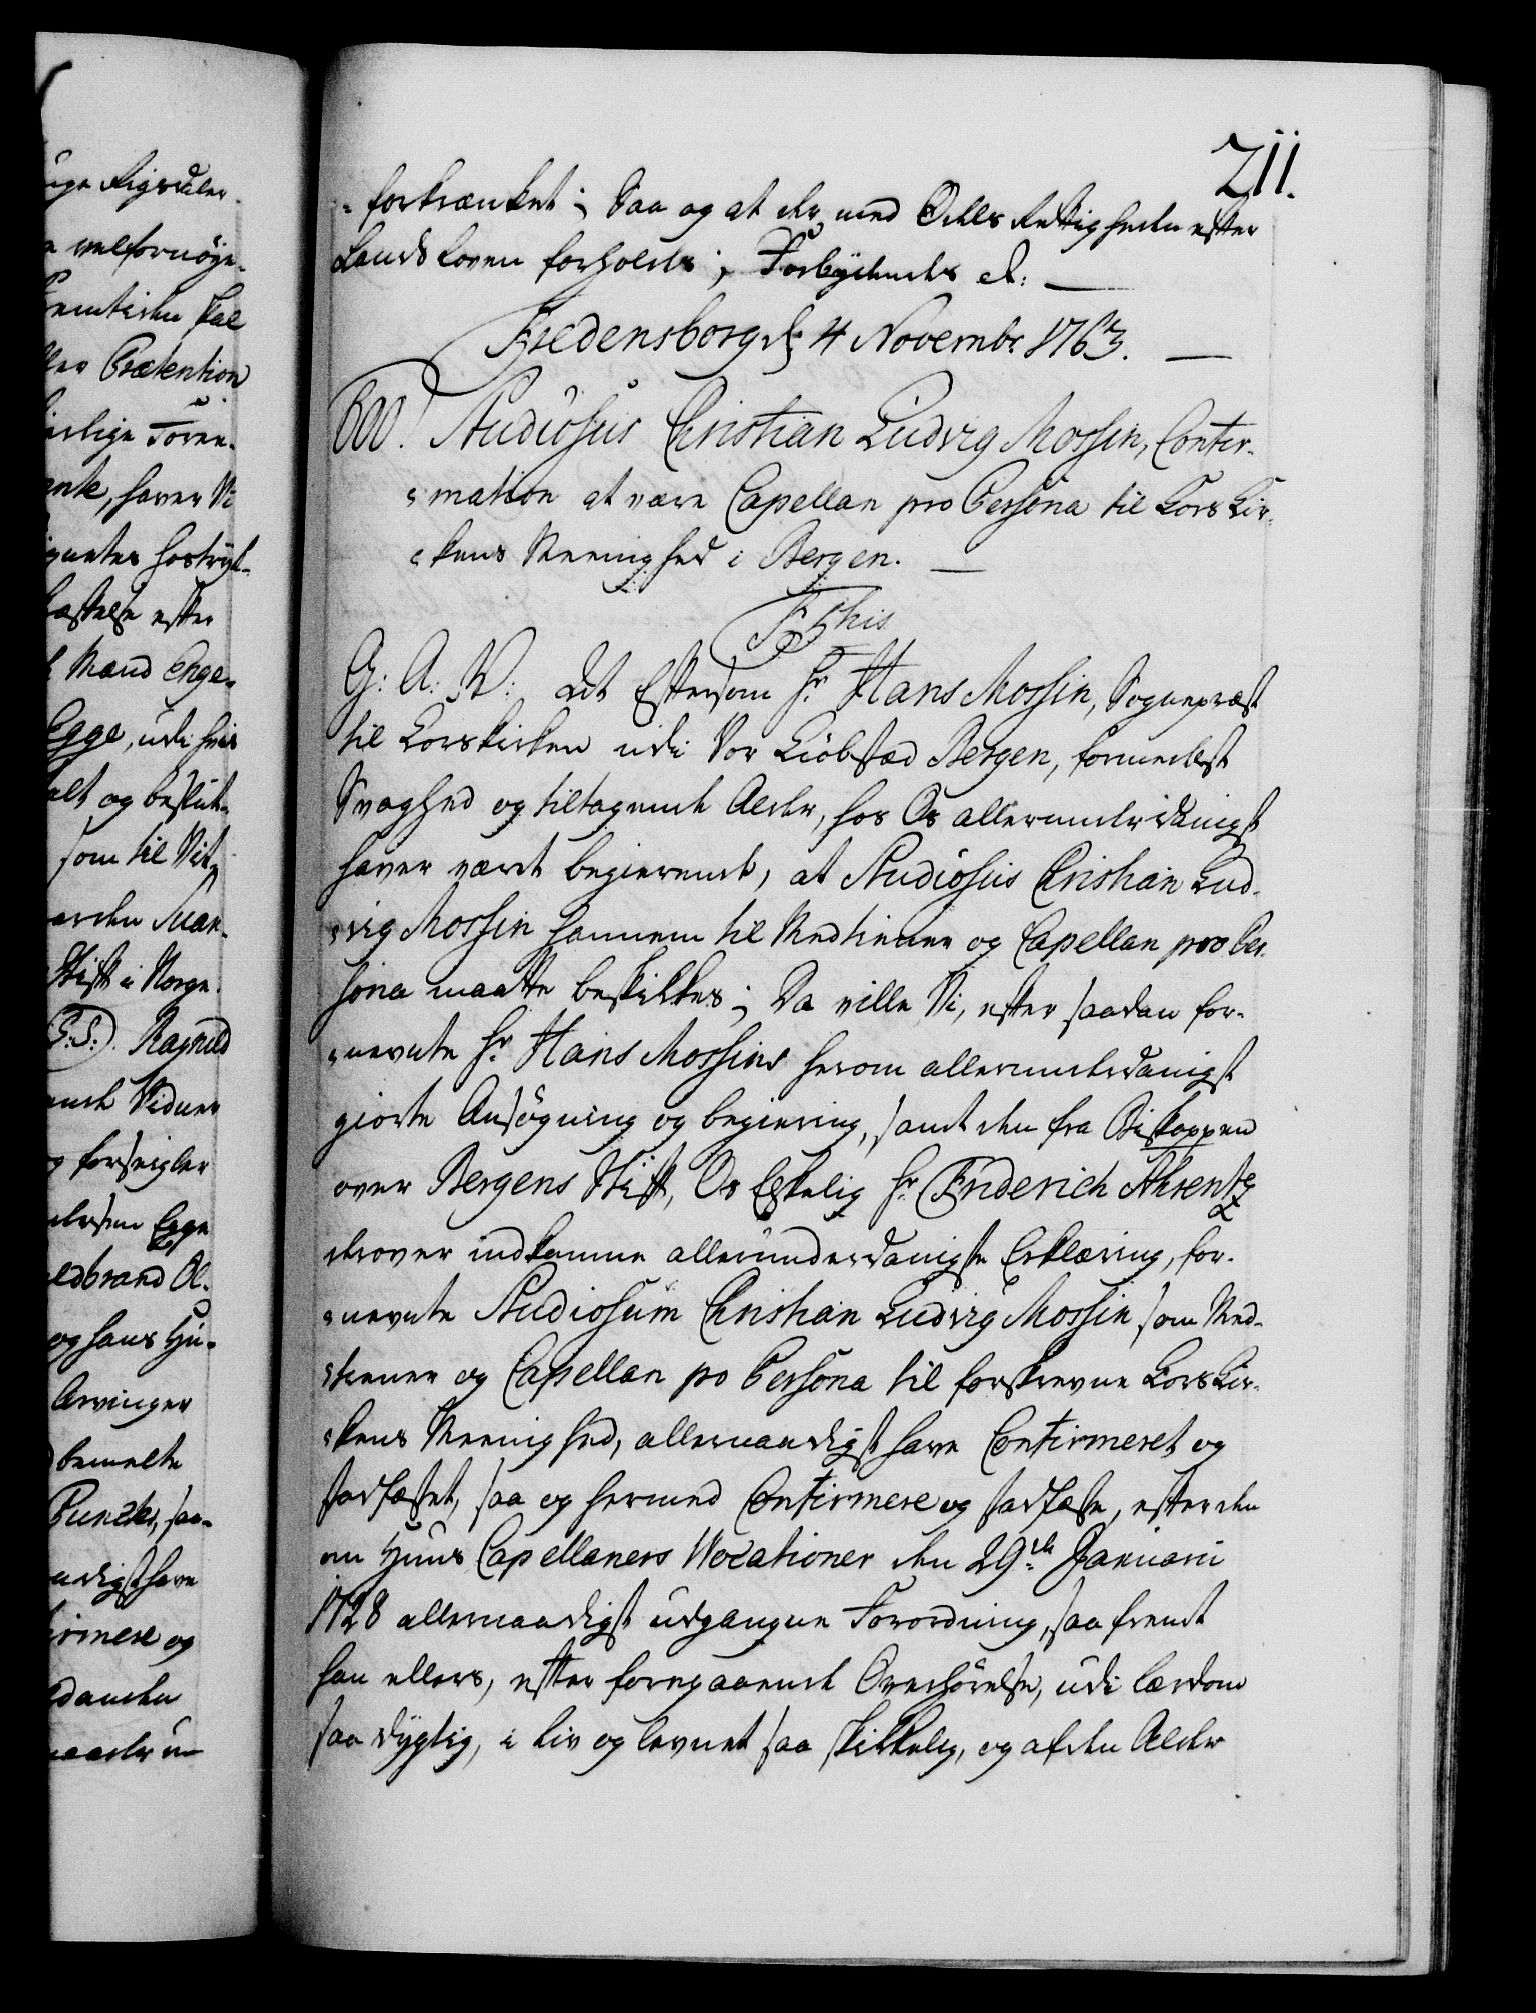 uge Rigsdaler
velfornöye-
fremtiden skal
ler Prætention
lige Foren-
ente, haver Vi
ignetes fortryk-
fæstelse efter
Mænd Enge-
Egge, udi hvis
alt og beslut-
som til Vit-
Stift i Norge.
Ragnild
Vidner
forseigler
Egge
ldbrand Ol-
og hans Hu-
Arvinger
bemelte
Puncter, saa-
naadigst have
firmere og
211.
-forkrænket; Saa og at der med Odels Rettigheden efter
Lands Loven forholdes; Forbydendes et: —
Fredensborg d: 4 Novembr: 1763. —
600. Studiosus Christian Ludvig Mossin, Confir-
-mation at være Capellan pro Persona til Kors Kir-
-kens Meenighed i Bergen. —
G: A: V: At Eftersom Hr Hans Mossin, Sognepræst
til Korskirken udi Vor Kiöbstæd Bergen, formedelst
Svaghed og tiltagende Alder, hos Os allerunderdanigst
haver været begierende, at Studiosus Christian Lud-
-vig Mossin hannem til Medtiener og Capellan pro Per-
sona maatte beskikkes; Da ville Vi, efter saadan for-
-nevnte Hr Hans Mossins herom allerunderdanigst
giorte Ansögning og begiering, samt den fra Biskoppen
over Bergens Stift, Os Elskelig Hr Friderich Ahrentz
derover indkomne allerunderdanigste Erklæring, for-
-nevnte Studiosum Christian Ludvig Mossin, som Med-
-tiener og Capellan po Persona til forskrevne Kors Kir-
-kens Meenighed, allernaadigst have Confirmeret og
stadfæstet, saa og hermed Confirmere og stadfæste, efter den
om Huus Capellaners Vocationer den 29de Januarii
1728 allernaadigst udgangne Forordning, saafremt
han ellers, efter foregaaende Overhörelse, udi lærdom
saa dygtig, i Liv og levnet saa skikkelig, og af den Alder